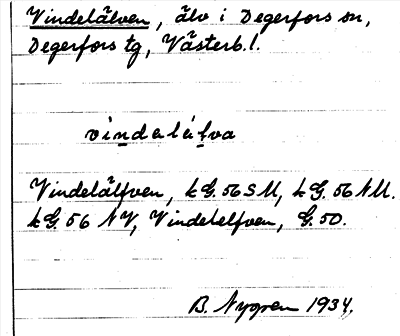 Vindelälven, älv i Degerfors sn,
Degerfors tg, Västerb. l.
vindəlálva
Vindelälfven, kG. 56 S M, kG. 56 N M.
kG. 56 N V, Vindelelfven, G. 50.
B. Nygren 1934.